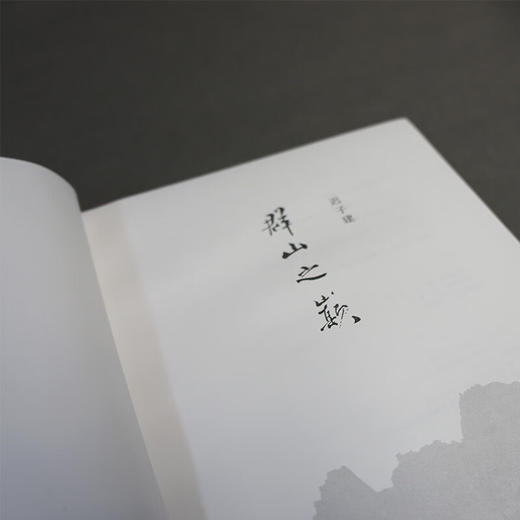 迟子建
群山之巅